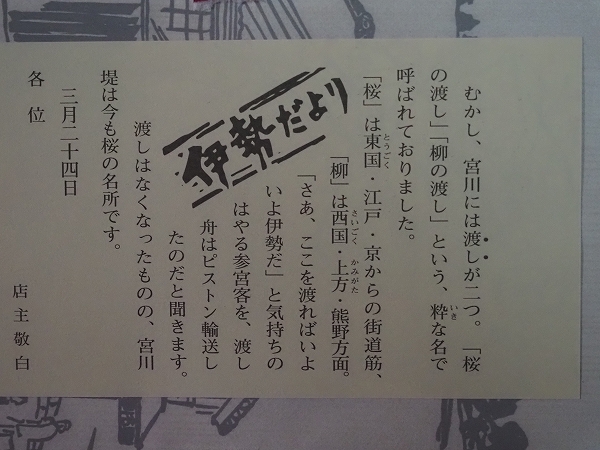 むかし、宮川には渡しが二つ。「桜
の渡し」「柳の渡し」という、粋な名で
呼ばれておりました。
「桜」は東国・江戸・京からの街道筋、
「柳」は西国・上方・熊野方面。
「さあ、ここを渡ればいよ
いよ伊勢だ」と気持ちの
はやる参宮客を、渡し
舟はピストン輸送し
たのだと聞きます。
渡しはなくなったものの、宮川
堤は今も桜の名所です。
三月二十四日
店主敬白
各位
伊勢だより
いき
とうごく
さいごく
かみがた